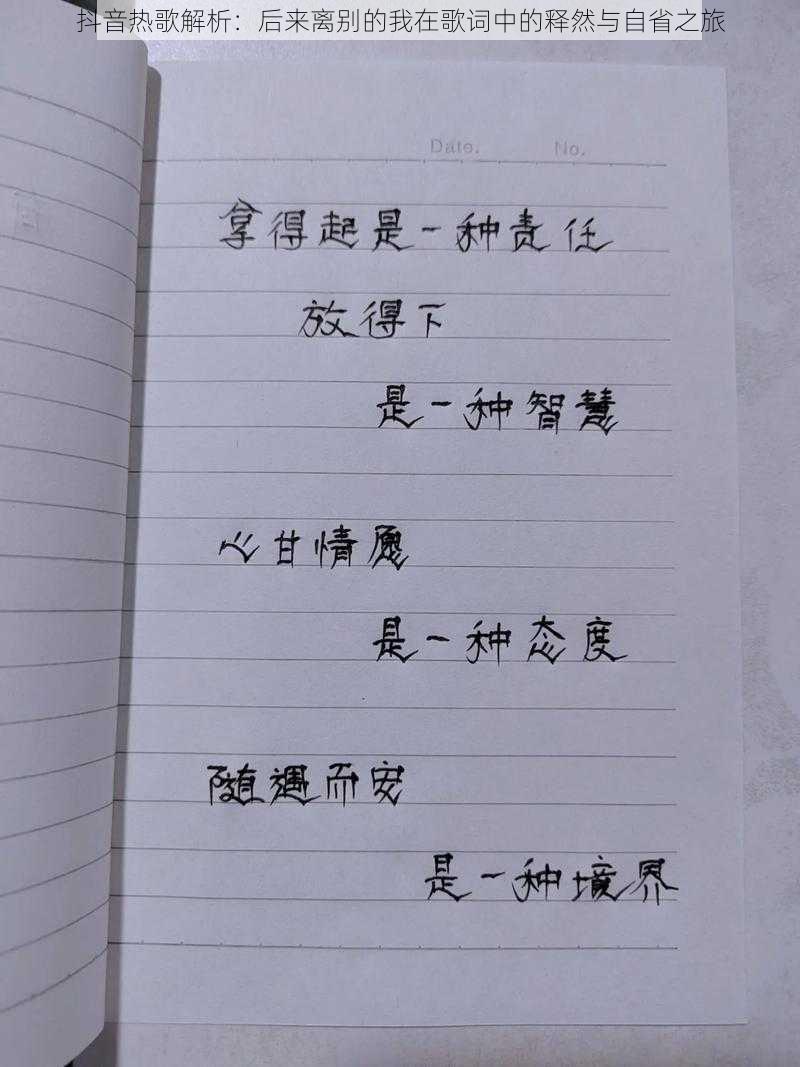 抖音热歌解析：后来离别的我在歌词中的释然与自省之旅
Date.	No.
拿得起是一种责任
放得下
是一种智慧
心甘情愿
是一种态度
随遇而安
是一种境界